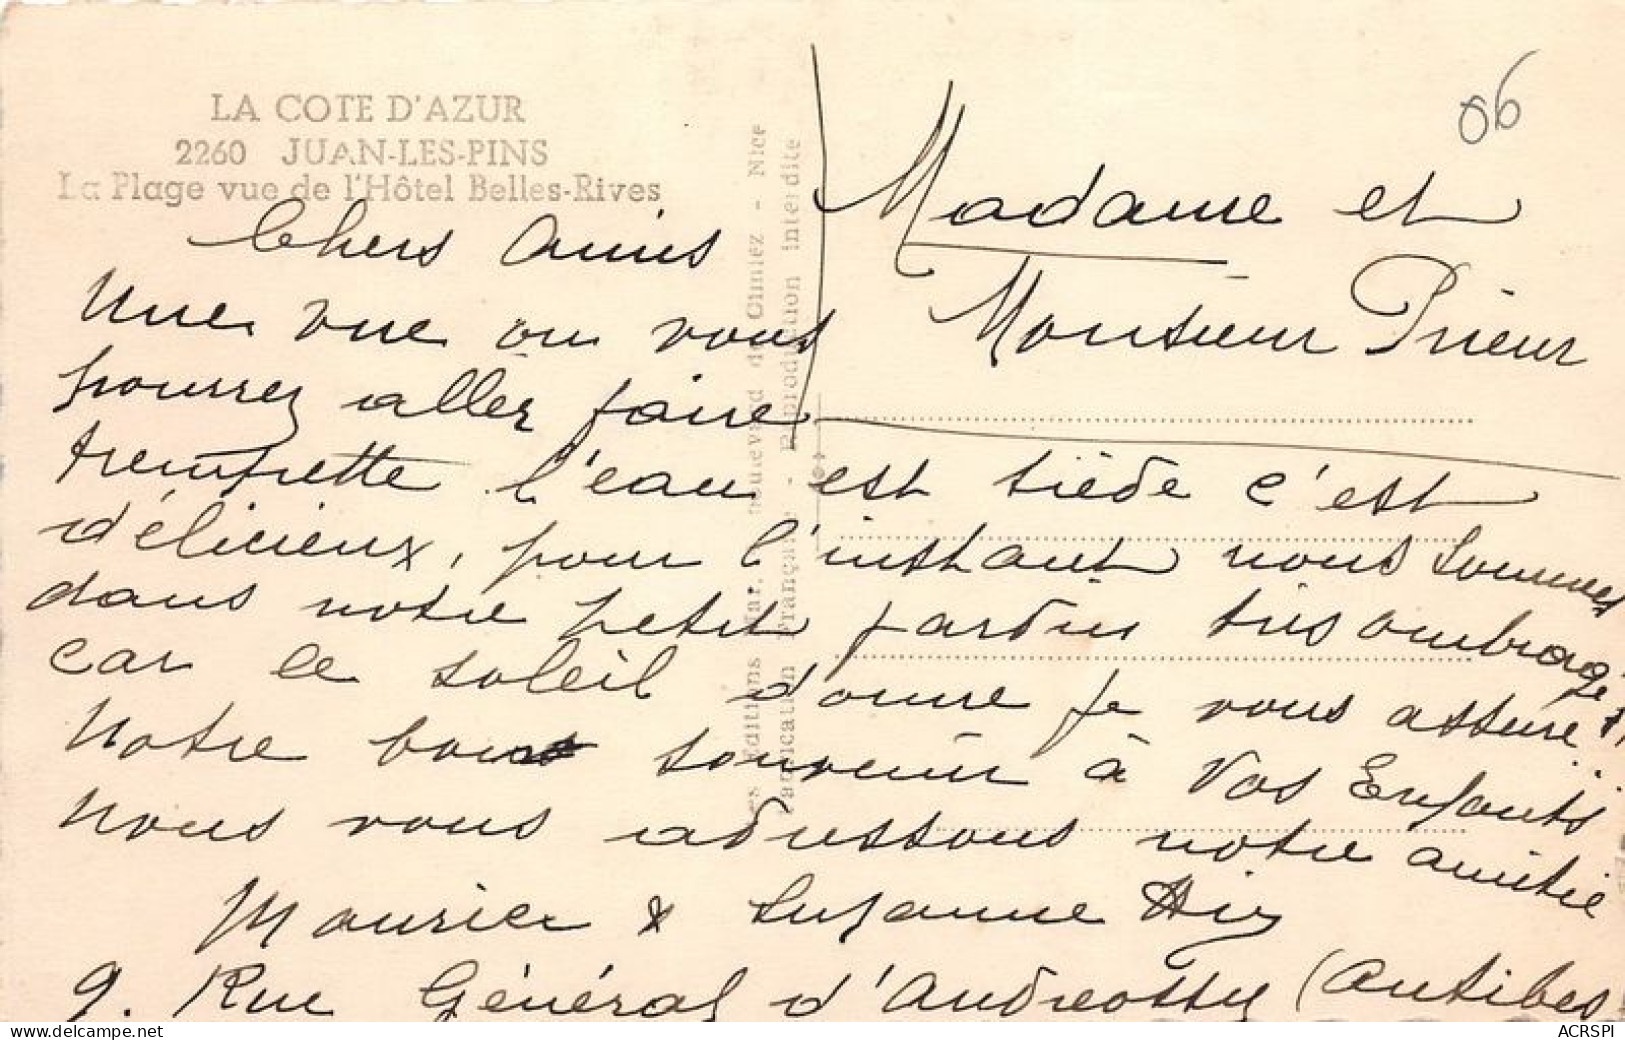 LA COTE D'AZUR
2260 JUAN-LES-PINS
La Plage vue de l'Hôtel Belles-Rives
06
Madame et
Monsieur Prieur
Chers Amis
Une vue où vous
pourrez aller faire
trempette l'eau est tiède c'est
délicieux, pour l'instant nous sommes
dans notre petit jardin très ombragé
car le soleil donne je vous assure !
Notre bon souvenir à Vos Enfants
Nous vous adressons notre amitié
Maurice & Suzanne
9. Rue Général d'Andréossy (Antibes
Les Editions Mar. boulevard de Cimiez - Nice
Fabrication Française - Reproduction interdite
ACRSPI
delcampe.net